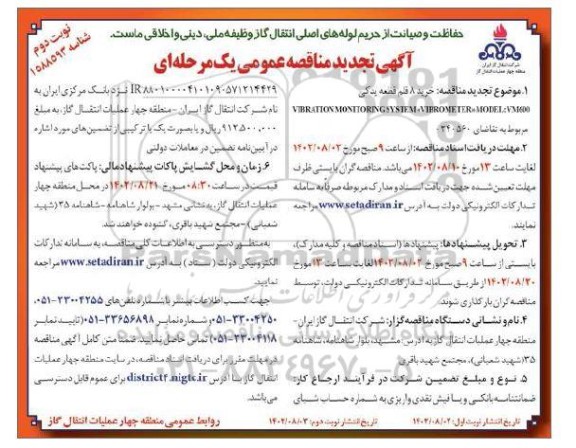 حفاظت و صیانت از حریم لوله‌های اصلی انتقال گاز وظیفه ملی، دینی و اخلاقی ماست.
نوبت دوم
شناسه ۱۵۸۸۵۹۳
شرکت ملی گاز ایران
شرکت انتقال گاز ایران
منطقه چهار عملیات انتقال گاز
آگهی تجدید مناقصه عمومی یک مرحله‌ای
۱. موضوع تجدید مناقصه: خرید ۸ قلم قطعه یدکی
VIBRATION MONITORING SYSTEM «VIBROMETER» MODEL: VM600
مربوط به تقاضای ۲۴۰۵۶۰
۲. مهلت دریافت اسناد مناقصه: از ساعت ۹ صبح مورخ ۱۴۰۲/۰۸/۰۲
لغایت ساعت ۱۳ مورخ ۱۴۰۲/۰۸/۱۰ می‌باشد. مناقصه گران بایستی ظرف
مهلت تعیین شده جهت دریافت اسناد و مدارک مربوطه صرفا به سامانه
تدارکات الکترونیکی دولت به آدرس www.setadiran.ir مراجعه
نمایند.
۳. تحویل پیشنهادها: پیشنهادها (اسناد مناقصه و کلیه مدارک)،
بایستی از ساعت ۹ صبح مورخ ۱۴۰۲/۰۸/۰۲ لغایت ساعت ۱۳ مورخ
۱۴۰۲/۰۸/۲۰ از طریق سامانه تدارکات الکترونیکی دولت، توسط
مناقصه گران بارگذاری شوند.
۴. نام و نشانی دستگاه مناقصه گزار: شرکت انتقال گاز ایران -
منطقه چهار عملیات انتقال گاز به آدرس: مشهد، بلوار شاهنامه، شاهنامه
۳۵ (شهید شعبانی)، مجتمع شهید باقری.
۵. نوع و مبلغ تضمین شرکت در فرآیند ارجاع کار:
ضمانتنامه بانکی و یا فیش نقدی واریزی به شماره حساب شبای
IR ۸۸۰۱۰۰۰۰۴۱۰۱۰۹۰۵۷۱۲۱۴۴۲۹ نزد بانک مرکزی ایران به
نام شرکت انتقال گاز ایران - منطقه چهار عملیات انتقال گاز، به مبلغ
۹۱۲,۵۰۰,۰۰۰ ریال و یا بصورت یک یا ترکیبی از تضمین‌های مورد اشاره
در آیین‌نامه تضمین در معاملات دولتی
۶. زمان و محل گشایش پاکات پیشنهاد مالی: پاکت‌های پیشنهاد
قیمت در ساعت ۰۸:۳۰ مورخ ۱۴۰۲/۰۸/۲۱ در محل منطقه چهار
عملیات انتقال گاز، به نشانی مشهد - بولوار شاهنامه - شاهنامه ۳۵ (شهید
شعبانی) - مجتمع شهید باقری، گشوده خواهند شد.
به منظور دسترسی به اطلاعات کلی مناقصه، به سامانه تدارکات
الکترونیکی دولت (ستاد) به آدرس www.setadiran.ir مراجعه
نمایید.
جهت کسب اطلاعات بیشتر با شماره تلفن‌های ۳۳۰۰۴۲۵۵-۰۵۱،
۳۳۰۰۴۲۵۰-۰۵۱ شماره نمابر ۳۳۶۵۶۸۹۸-۰۵۱ (تایید نمابر
۳۳۰۰۴۱۱۸-۰۵۱) تماس حاصل نمایید. ضمنا متن کامل آگهی مناقصه
در مهلت مقرر برای دریافت اسناد مناقصه، در سایت منطقه چهار عملیات
انتقال گاز به آدرس district4.nigtc.ir برای عموم قابل دسترسی
می‌باشد.
تاریخ انتشار نوبت اول: ۱۴۰۲/۰۸/۰۲
تاریخ انتشار نوبت دوم: ۱۴۰۲/۰۸/۰۳
روابط عمومی منطقه چهار عملیات انتقال گاز